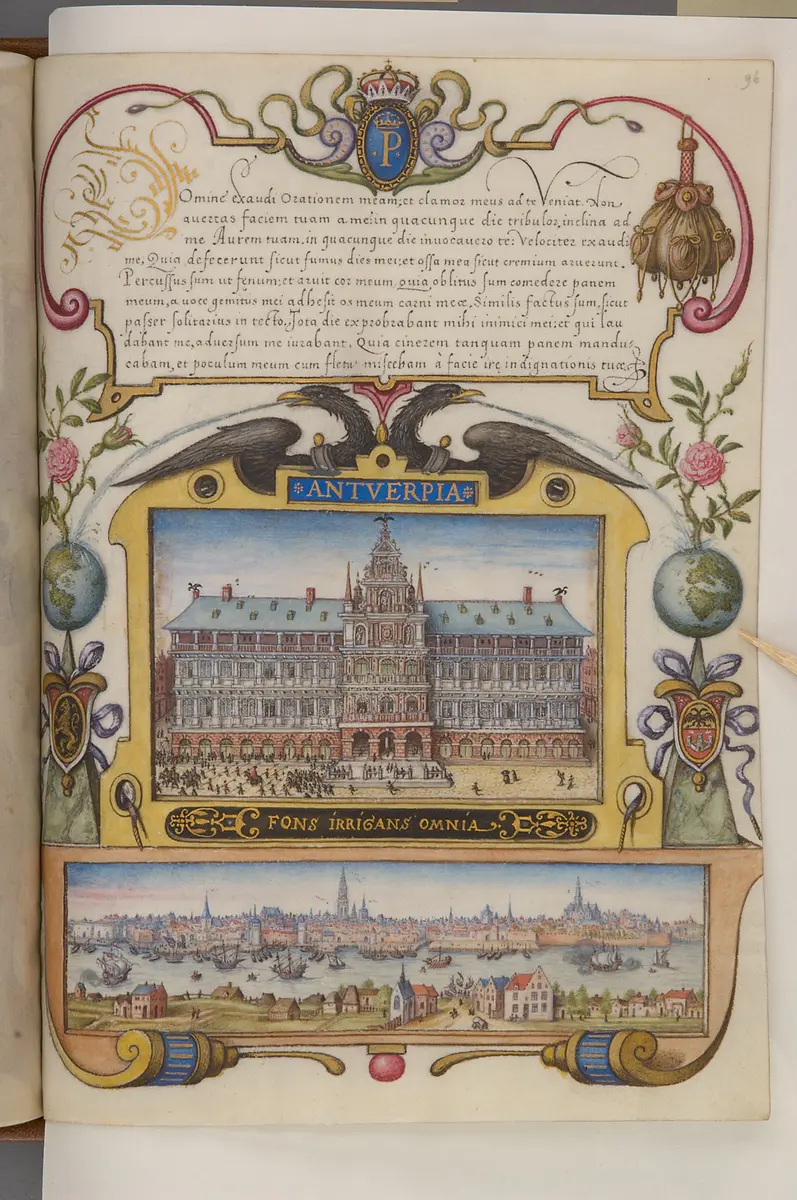 96
P
Domine exaudi Orationem meam; et clamor meus ad te Veniat. Non
auertas faciem tuam a me: in quacunque die tribulor, inclina ad
me Aurem tuam. in quacunque die inuocauero te: Velociter exaudi
me, Quia defecerunt sicut fumus dies mei: et ossa mea sicut cremium aruerunt.
Percussus sum ut fenum: et aruit cor meum, quia oblitus sum comedere panem
meum, a uoce gemitus mei adhesit os meum carni meæ. Similis factus sum, sicut
passer solitarius in tecto, Tota die exprobrabant mihi inimici mei: et qui lau
dabant me, aduersum me iurabant. Quia cinerem tanquam panem mandu-
cabam, et poculum meum cum fletu miscebam à facie ire indignationis tuæ,
ANTVERPIA
FONS IRRIGANS OMNIA